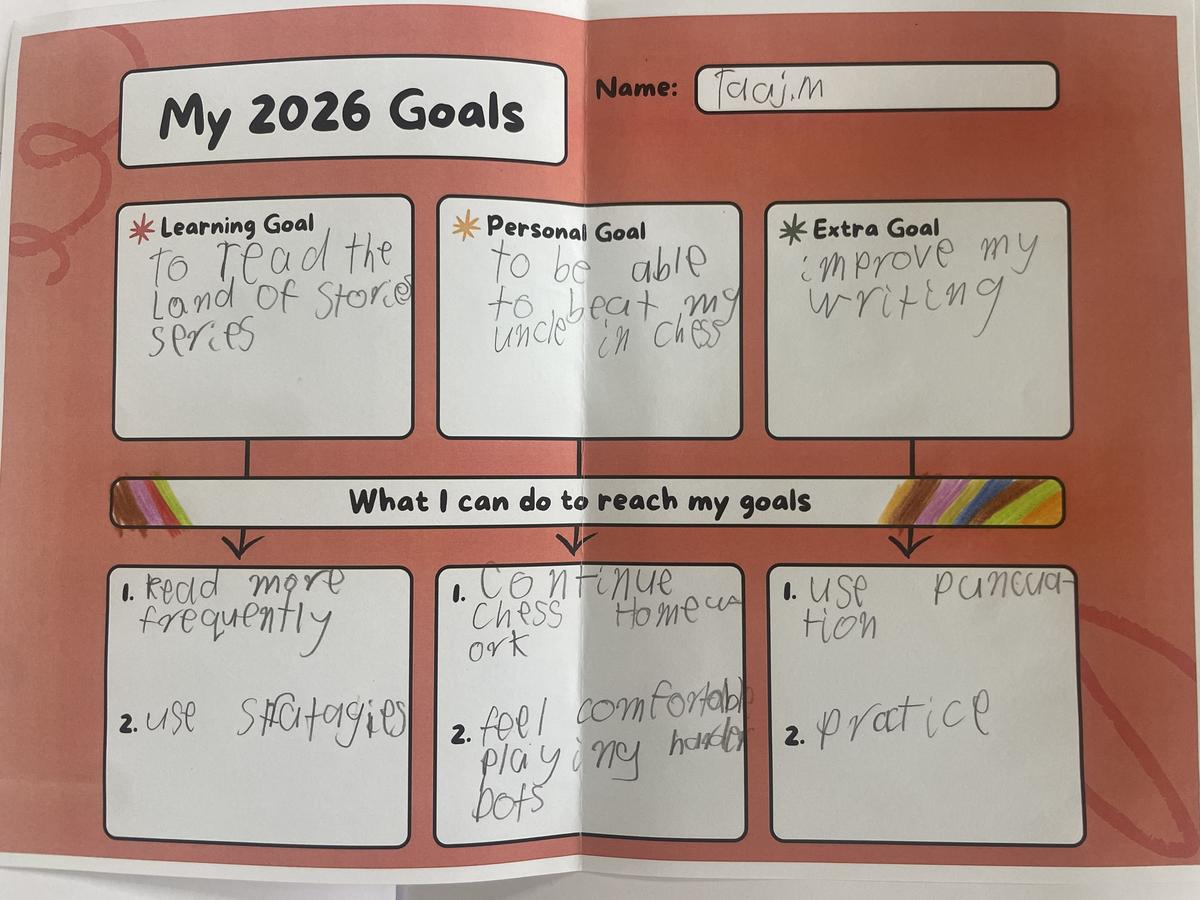 My 2026 Goals
Name: Taaj.M
Learning Goal
to read the
Land of Stories
series
Personal Goal
to be able
to beat my
uncle in chess
Extra Goal
improve my
writing
What I can do to reach my goals
1. Read more
frequently
2. use stratagies
1. Continue
chess Homew
ork
2. feel comfortable
playing harder
bots
1. use puncua-
tion
2. pratice